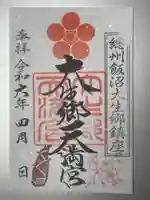 総州飯沼大生郷鎮座
大生郷天満宮
奉拝 令和六年 四月 日